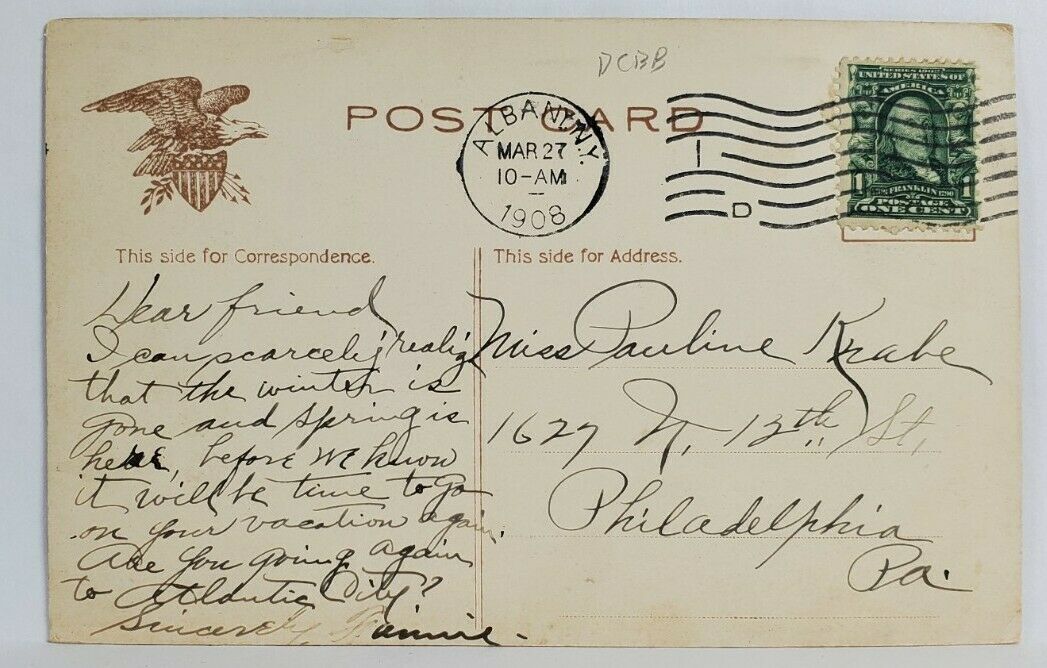 DCBB
POST CARD
ALBANY, N.Y.
MAR 27
10-AM
1908
I
D
SERIES 1902
UNITED STATES OF
AMERICA
1
FRANKLIN
POSTAGE
ONE CENT
This side for Correspondence.
This side for Address.
Dear friend,
I can scarcely realize
that the winter is
gone and spring is
here, before we know
it will be time to go
on your vacation again.
Are you going again
to Atlantic City?
Sincerely, Fannie.
Miss Pauline Krabe
1627 N. 13th St,
Philadelphia
Pa.